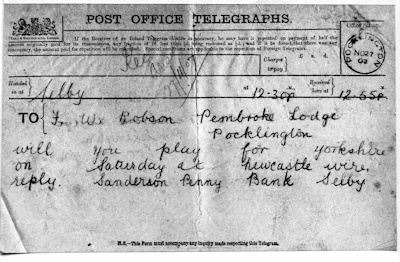 POST OFFICE TELEGRAPHS.
If the Receiver of an Inland Telegram doubts its accuracy, he may have it repeated on payment of half the
amount originally paid for its transmission, any fraction of 1d. less than ½d. being reckoned as ½d.; and if it be found that there was any
inaccuracy, the amount paid for repetition will be refunded. Special conditions are applicable to the repetition of Foreign Telegrams.
Office Stamp.
POCKLINGTON
NO 27
02
Charges
to pay
Handed
in at
Selby
12-30p
Received
here at
12-55p
TO
F. W. Robson Pembroke Lodge
Pocklington
will you play for Yorkshire
on Saturday at newcastle wire
reply. Sanderson Penny Bank Selby
N.B.—This Form must accompany any inquiry made respecting this Telegram.